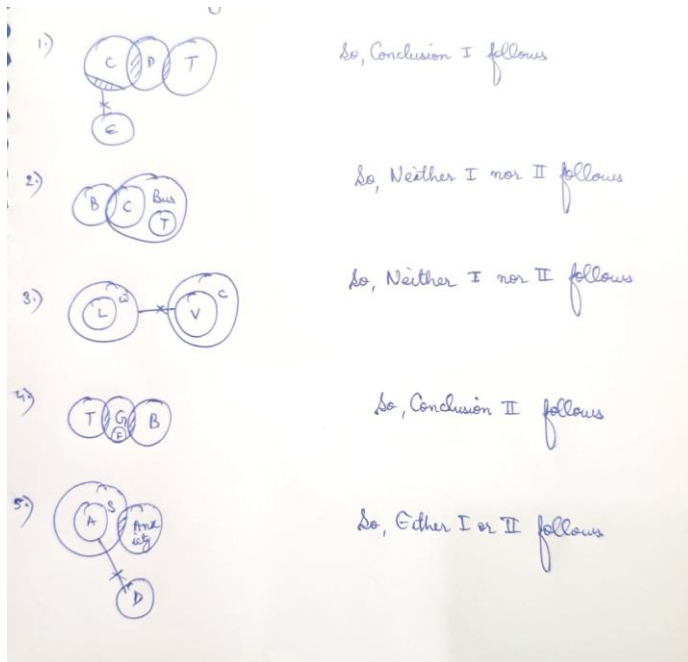 1.) C D T So, Conclusion I follows
E
2.) B C Bus T So, Neither I nor II follows
3.) L V C So, Neither I nor II follows
4.) T G F B So, Conclusion II follows
5.) A S Anxiety So, Either I or II follows
D